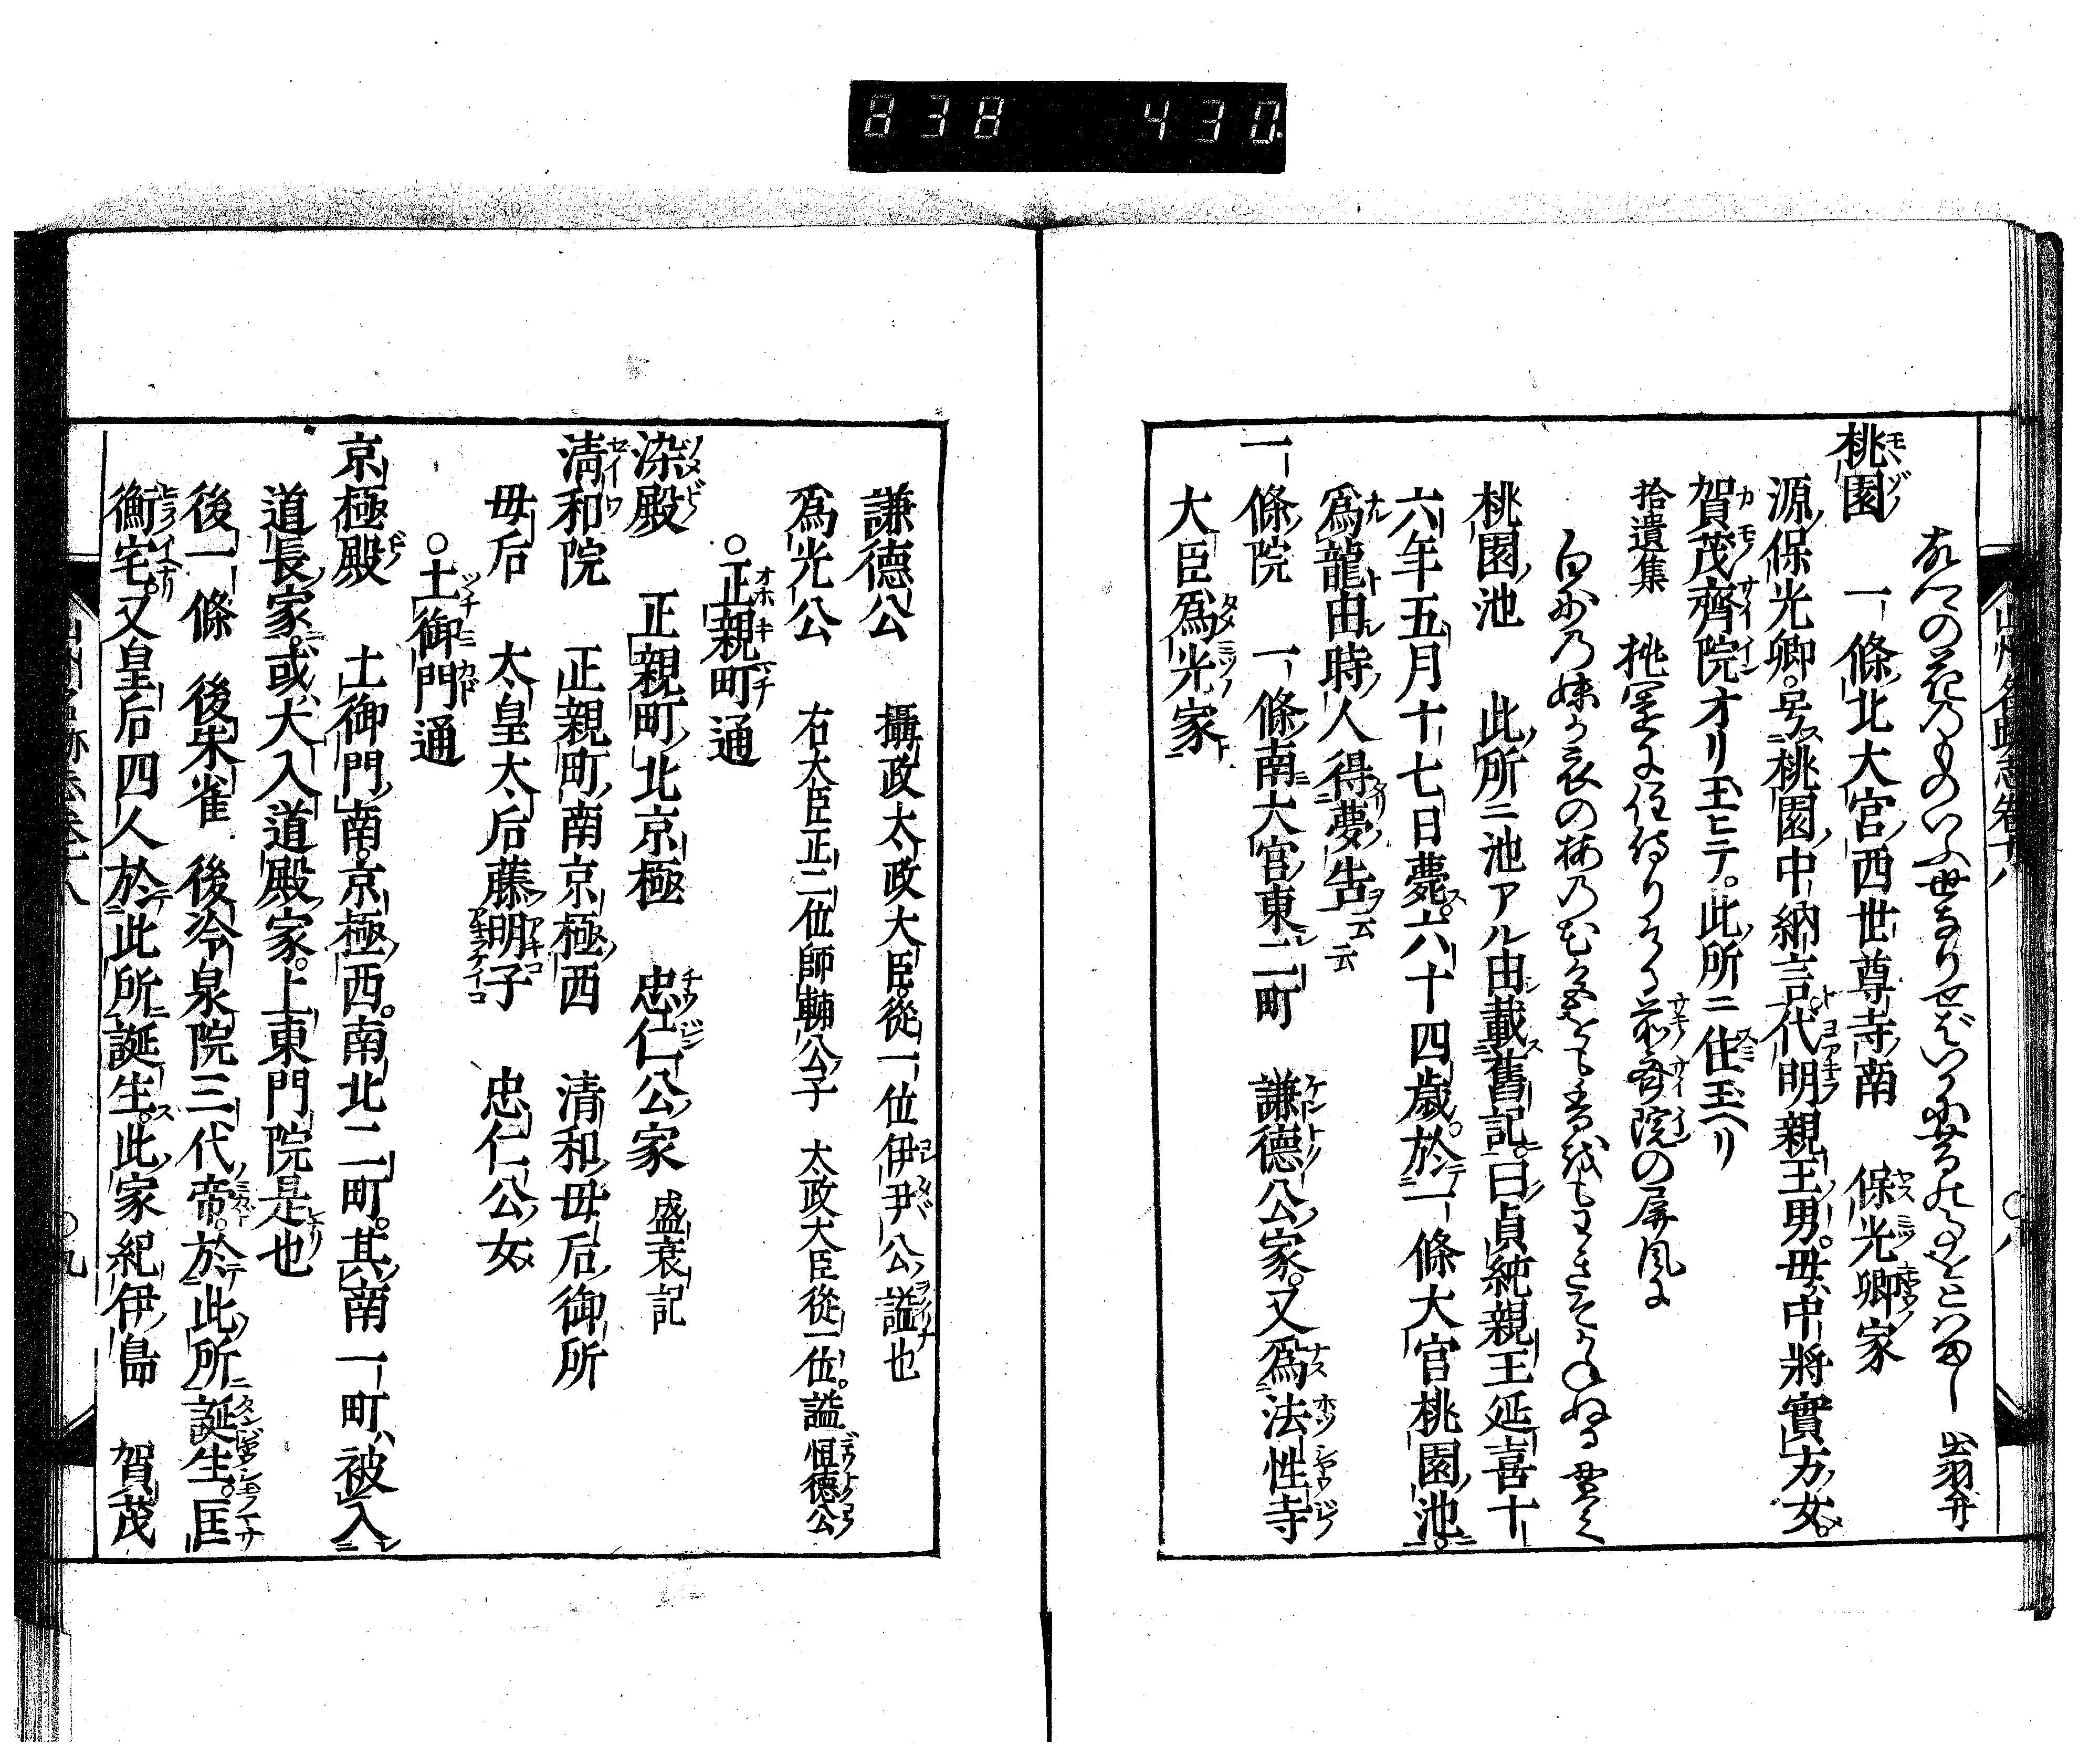 838 430.
故人の花のものいふ世なりせばいかに昔のことをとはまし 出羽弁
桃園 一條北大宮西世尊寺南 保光卿家
源保光卿。号桃園中納言。代明親王男。母ハ中將實方女。
賀茂齊院オリ玉ヒテ。此所ニ住玉ヘリ
拾遺集 桃園に住侍りける前斎院の屏風に
白妙の妹か衣の梅の
桃園池 此所ニ池アル由載舊記。曰貞純親王延喜十
六年五月十七日薨。六十四歳。於一條大宮桃園池。
爲龍由時人得夢告云云
一條院 一條南大宮東二町 謙德公家。又爲法性寺
大臣爲光家
山州名跡志卷十八
謙德公 攝政太政大臣從一位伊尹公謚也
爲光公 右大臣正二位師輔公子 太政大臣從一位。謚恒德公
○正親町通
染殿 正親町北京極 忠仁公家 盛衰記
清和院 正親町南京極西 清和母后御所
母后 太皇太后藤明子 忠仁公女
○土御門通
京極殿 土御門南。京極西。南北二町。其南一町ハ被入
道長家。或ハ大入道殿家。上東門院是也
後一條 後朱雀 後冷泉院三代帝。於此所誕生。匡
衡宅。又皇后四人於此所誕生。此家紀伊嶋 賀茂
○九